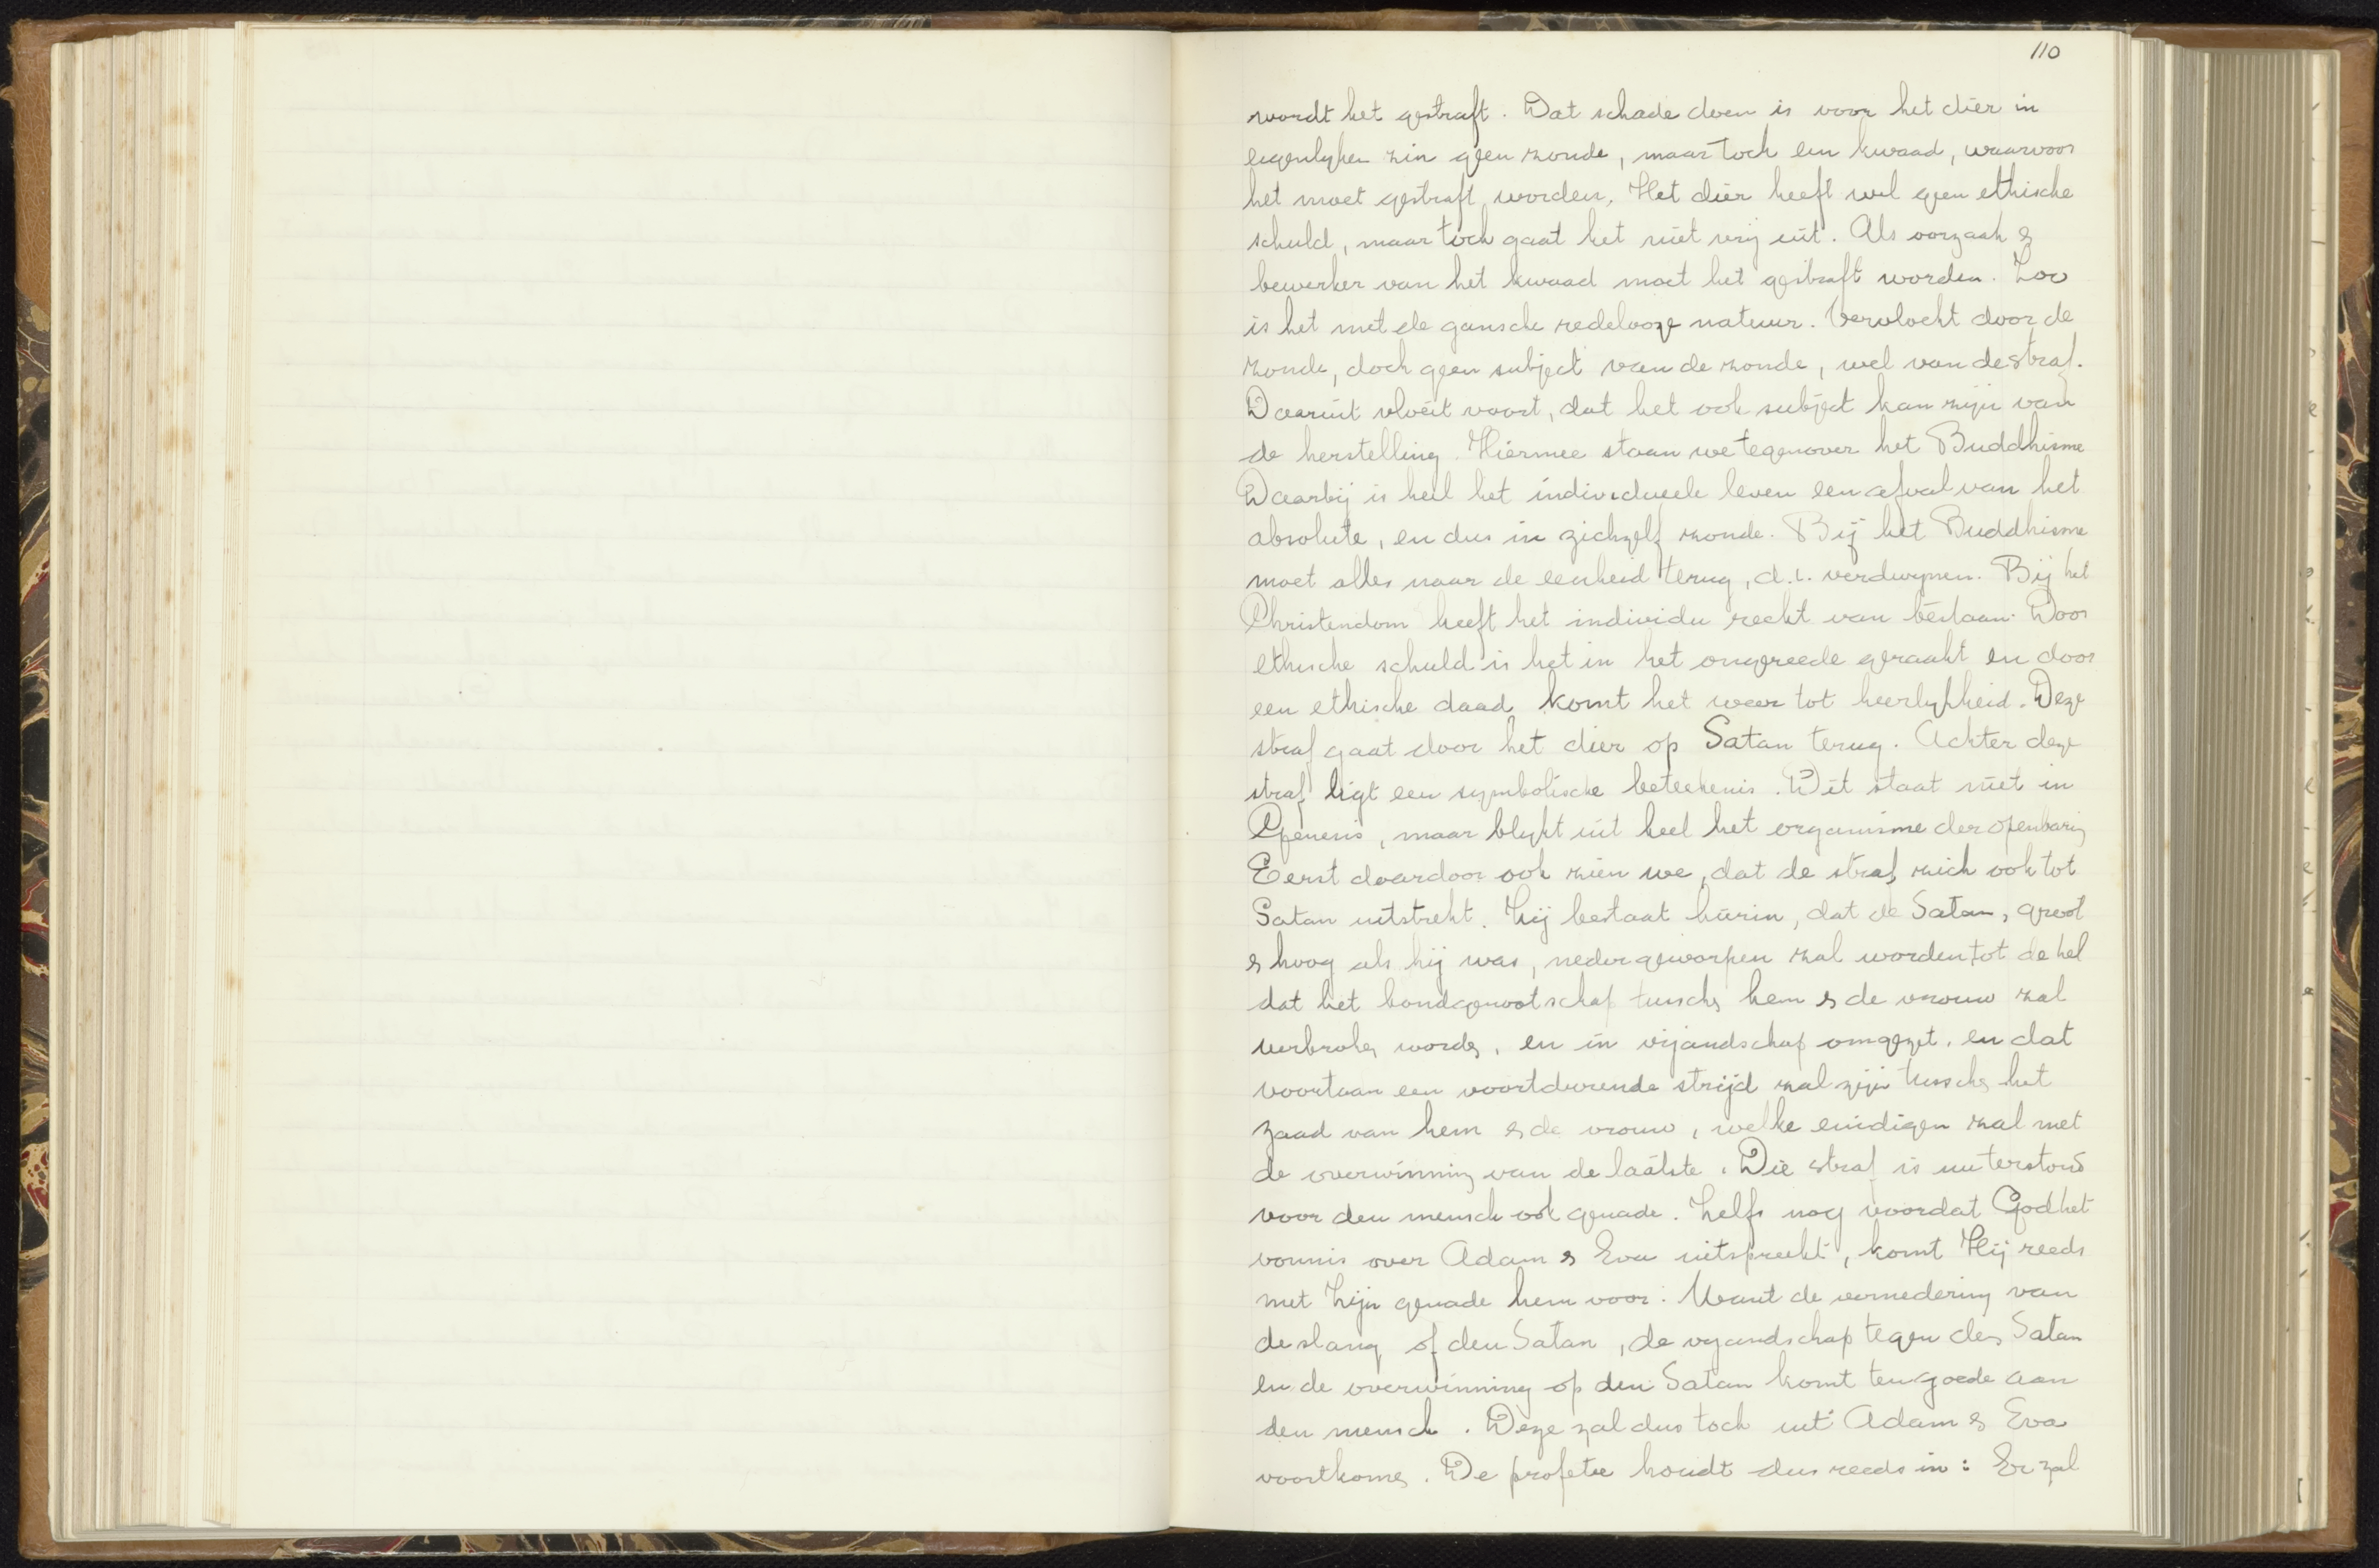 110
wordt het gestraft. Dat schade doen is voor het dier in
eigenlyken zin geen zonde, maar toch een kwaad, waarvoor
het moet gestraft worden. Het dier heeft wel geen ethische
schuld, maar toch gaat het niet vrij uit. Als oorzaak &
bewerker van het kwaad moet het gestraft worden. Zoo
is het met de gansche redelooze natuur. Vervloekt door de
zonde, doch geen subject van de zonde, wel van de straf.
Daaruit vloeit voort, dat het ook subject kan zijn van
de herstelling. Hiermee staan we tegenover het Buddhisme
Daarbij is heel het individueele leven een afval van het
absolute, en dus in zichzelf zonde. Bij het Buddhisme
moet alles naar de eenheid terug, d.i. verdwynen. Bij het
Christendom heeft het individu recht van bestaan. Door
ethische schuld is het in het ongereede geraakt en door
een ethische daad komt het weer tot heerlykheid. Deze
straf gaat door het dier op Satan terug. Achter deze
straf ligt een symbolische beteekenis. Dit staat niet in
Genesis, maar blykt uit heel het organisme der openbaring
Eerst daardoor ook zien we, dat de straf zich ook tot
Satan uitstrekt. Zij bestaat hierin, dat de Satan, groot
& hoog als hij was, nedergeworpen zal worden tot de hel
dat het bondgenootschap tussche hem & de vrouw zal
verbroken worden, en in vijandschap omgezet, en dat
voortaan een voortdurende strijd zal zijn tusschen het
zaad van hem & de vrouw, welke eindigen zal met
de overwinning van de laatste. Die straf is nu terstond
voor den mensch ook genade. Zelfs nog voordat God het
vonnis over Adam & Eva uitspreekt, komt Hij reeds
met Zijn genade hem voor: Want de vernedering van
de slang of den Satan, de vyandschap tegen den Satan
en de overwinning op den Satan komt ten goede aan
den mensch. Deze zal dus toch uit Adam & Eva
voortkomen. De profetie houdt dus reeds in: Er zal